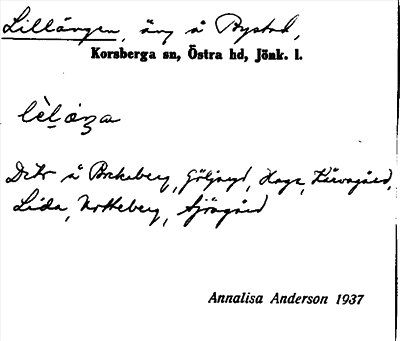 Lillängen, äng å Bystad,
Korsberga sn, Östra hd, Jönk. l.
Dito å Bockeberg, Göljaryd, Haga, Kärvagård,
Lida, Notteberg, Sjögård
Annalisa Anderson 1937